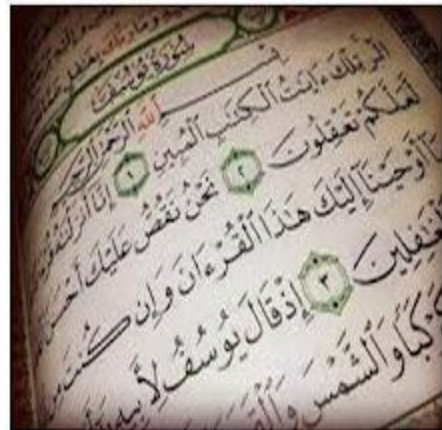 سُورَةُ يُوسُفَ
بِسْمِ اللَّهِ الرَّحْمَٰنِ الرَّحِيمِ
الٓر تِلْكَ ءَايَٰتُ ٱلْكِتَٰبِ ٱلْمُبِينِ ١ إِنَّآ أَنزَلْنَٰهُ
لَّعَلَّكُمْ تَعْقِلُونَ ٢ نَحْنُ نَقُصُّ عَلَيْكَ أَحْسَنَ
أَوْحَيْنَآ إِلَيْكَ هَٰذَا ٱلْقُرْءَانَ وَإِن كُنتَ مِن
ٱلْغَٰفِلِينَ ٣ إِذْ قَالَ يُوسُفُ لِأَبِيهِ
وَٱلشَّمْسَ